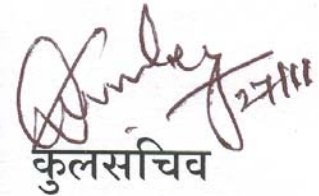 27/11
कुलसचिव